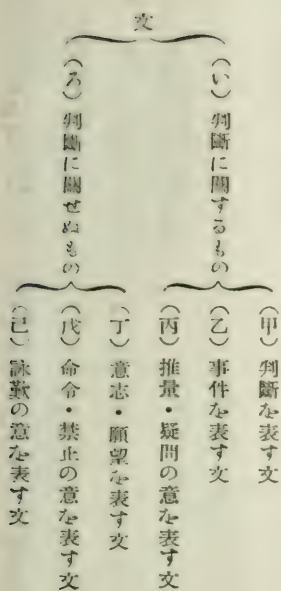 文
(い) 判斷に關するもの
(甲) 判斷を表す文
(乙) 事件を表す文
(丙) 推量・疑問の意を表す文
(ろ) 判斷に關せぬもの
(丁) 意志・願望を表す文
(戊) 命令・禁止の意を表す文
(己) 詠歎の意を表す文